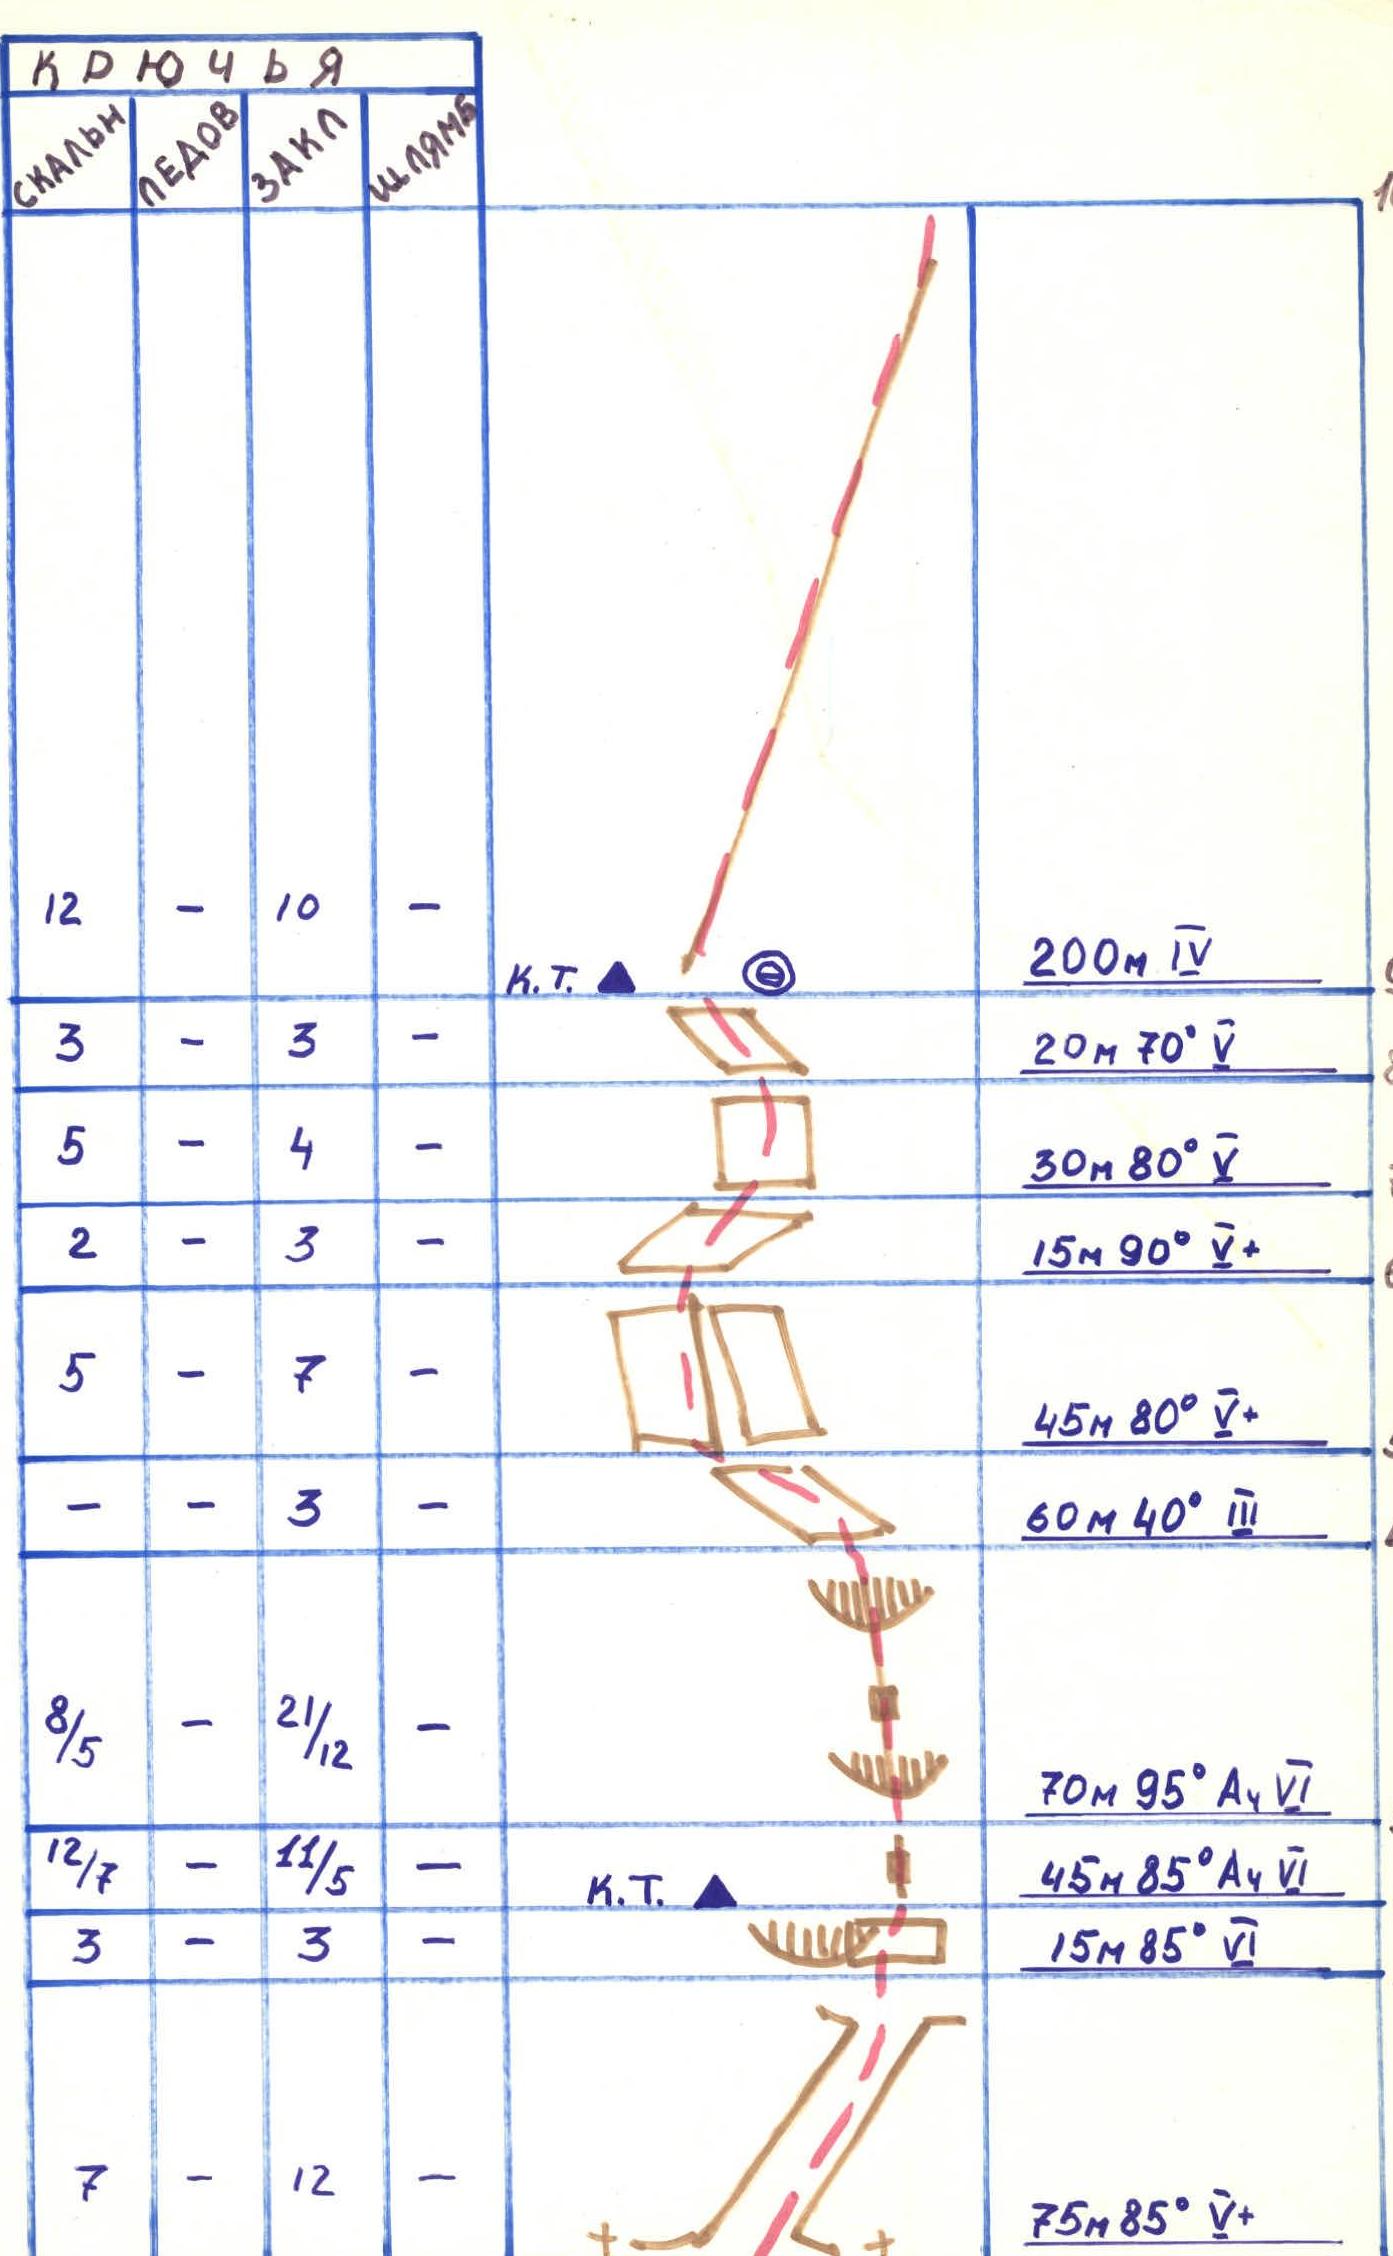 КРЮЧЬЯ
СКАЛЬН ЛЕДОВ ЗАКЛ ШЛЯМБ
12 – 10 – 200м IV
К.Т.
3 – 3 – 20м 70° V
5 – 4 – 30м 80° V
2 – 3 – 15м 90° V+
5 – 7 – 45м 80° V+
– – 3 – 60м 40° III
8/5 – 21/12 – 70м 95° А4 VI
12/7 – 11/5 – 45м 85° А4 VI
К.Т.
3 – 3 – 15м 85° VI
7 – 12 – 75м 85° V+